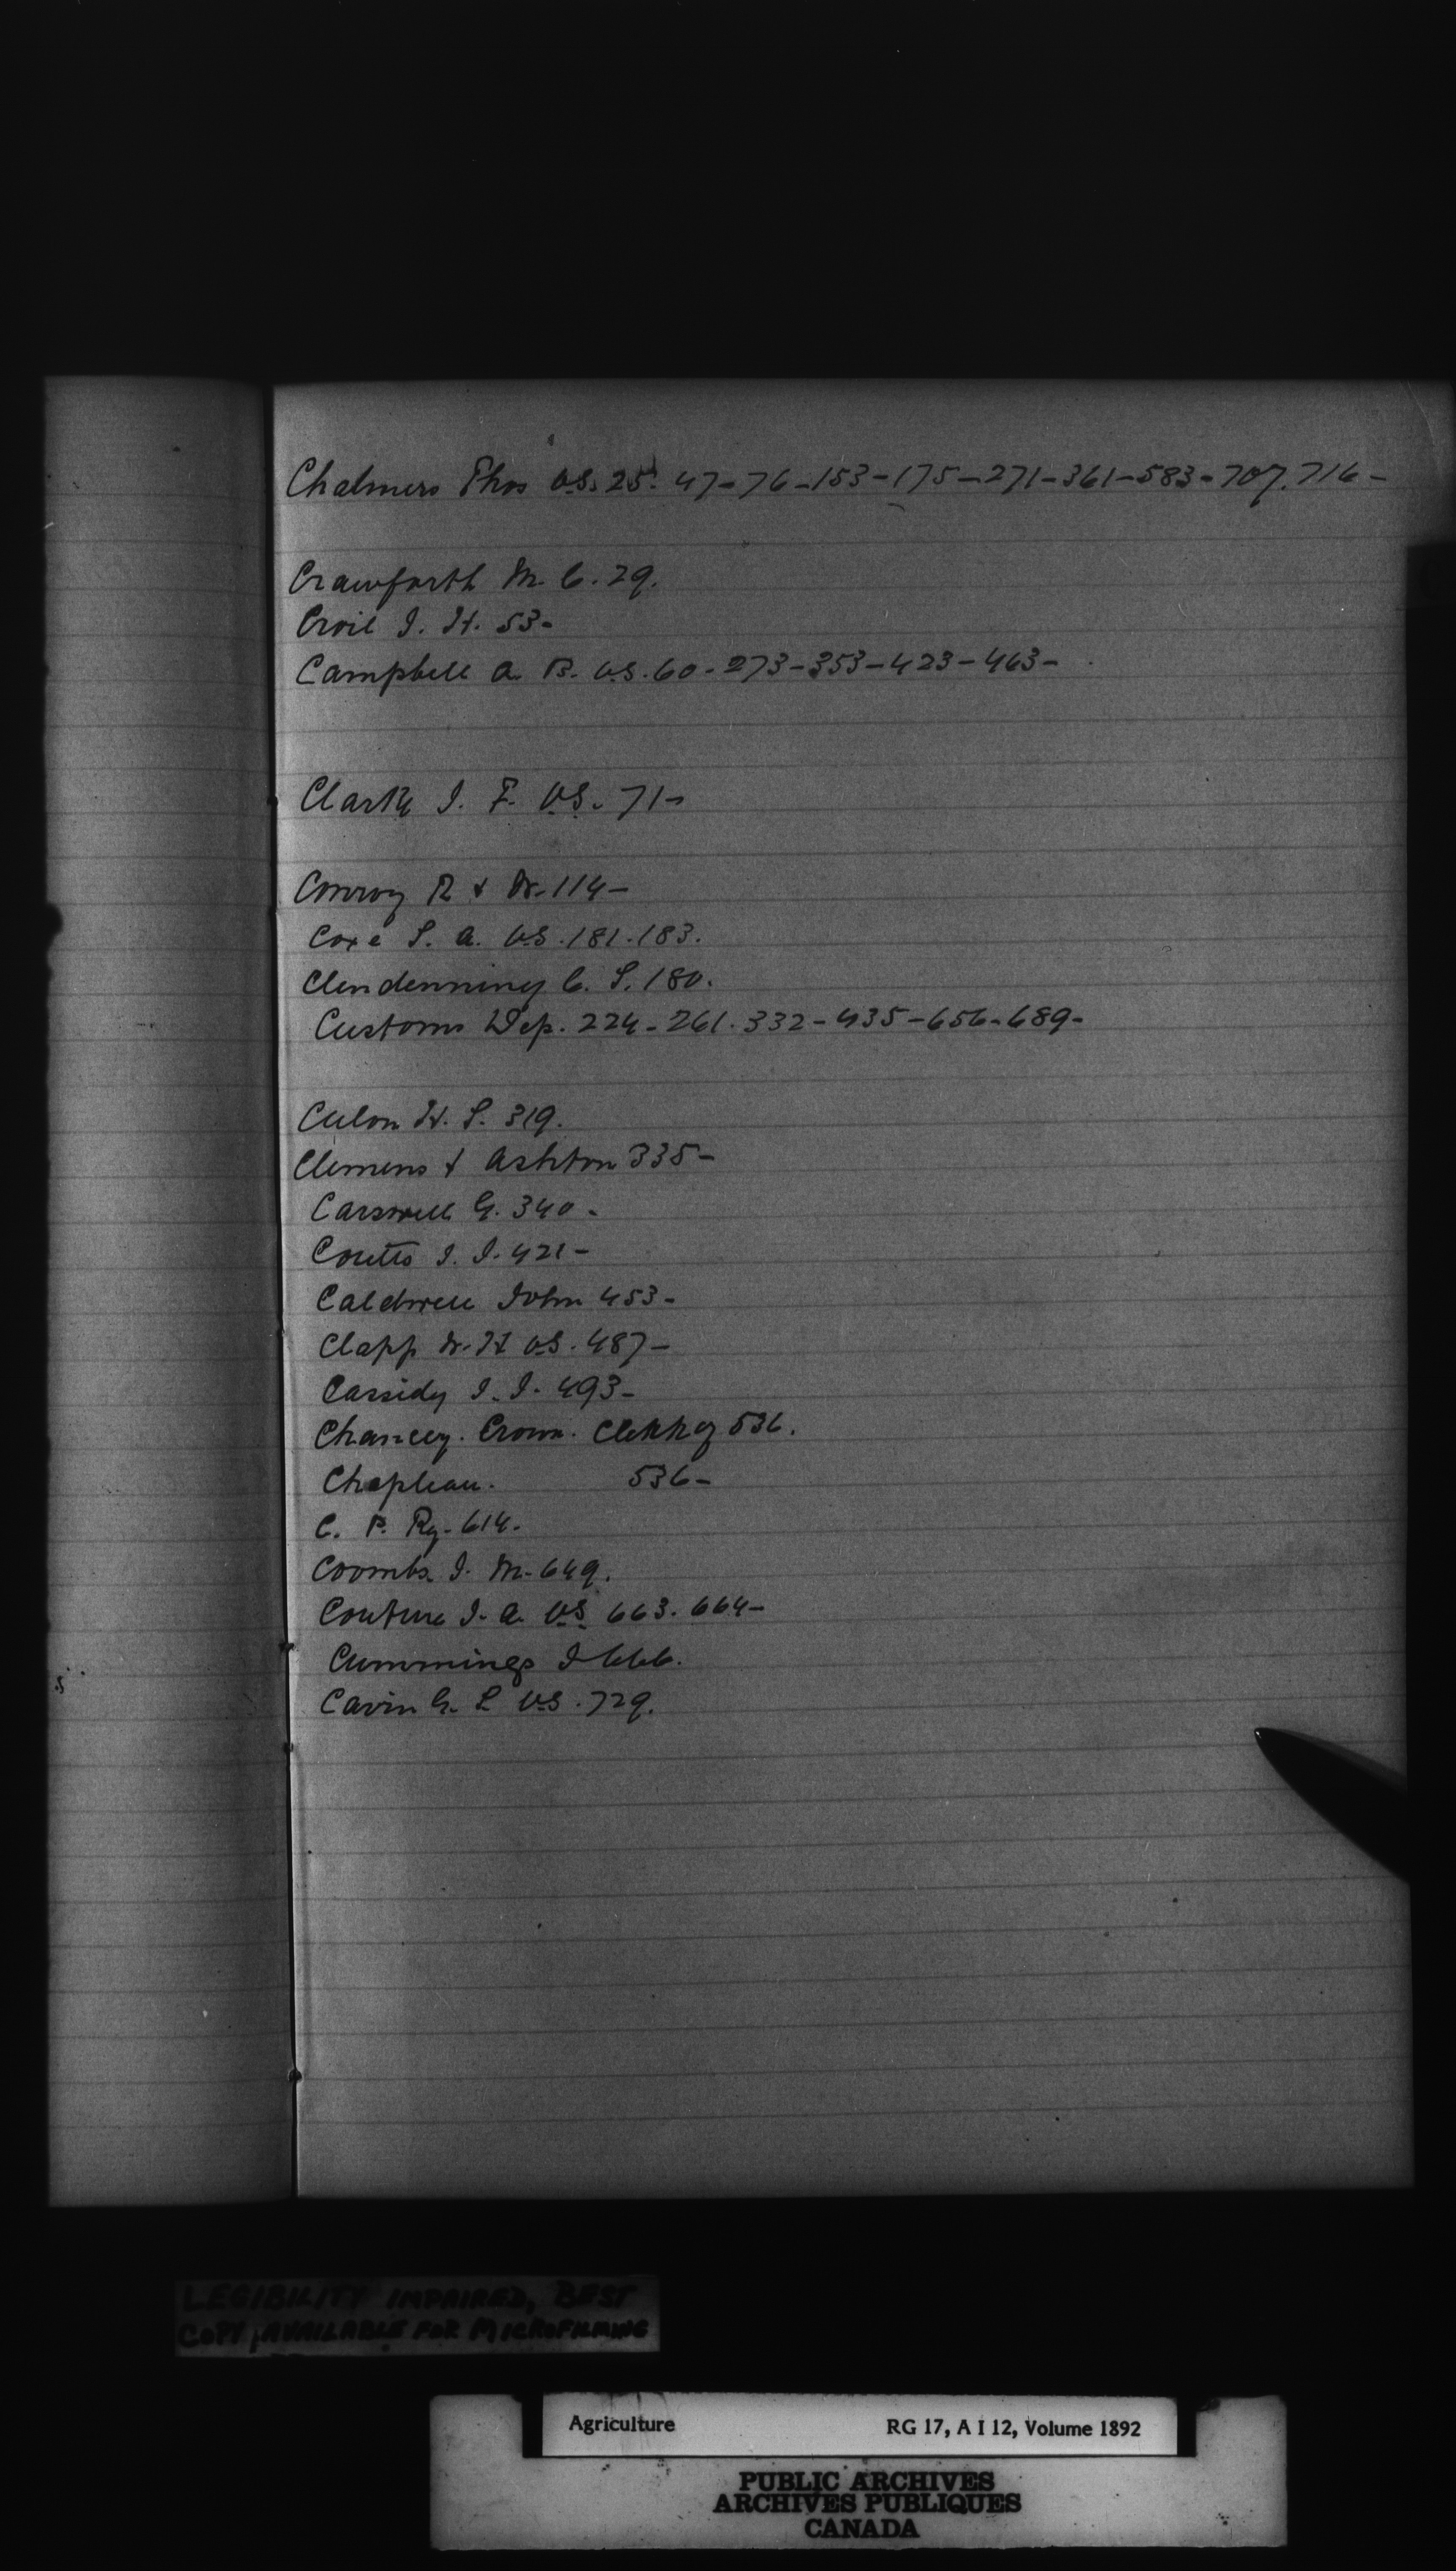 Chalmers Thos V.S. 25. 47-76-153-175-271-361-583-707.716-
Crawforth M. C. 29.
Croil J. H. 53-
Campbell A. B. V.S. 60-273-353-423-463-
Clark J. F. V.S. 71-
Conroy R & W. 114-
Coxe S. A. V.S. 181.183.
Clendenning C. S. 180.
Customs Dep. 224-261.332-435-656-689-
Culon H. S. 319.
Clemens & Ashton 335-
Carswell G. 340-
Coutts J. J. 421-
Caldwell John 453-
Clapp W. H V.S. 487-
Cassidy J. J. 493-
Chancey. Crown. Clerk of 536.
Chapleau. 536-
C. P. Ry. 614.
Coombs J. M. 649.
Couture J. A. V.S. 663. 664-
Cummings J 666.
Cavin G. L V.S. 729.
LEGIBILITY IMPAIRED, BEST
COPY AVAILABLE FOR MICROFILMING
Agriculture RG 17, A I 12, Volume 1892
PUBLIC ARCHIVES
ARCHIVES PUBLIQUES
CANADA